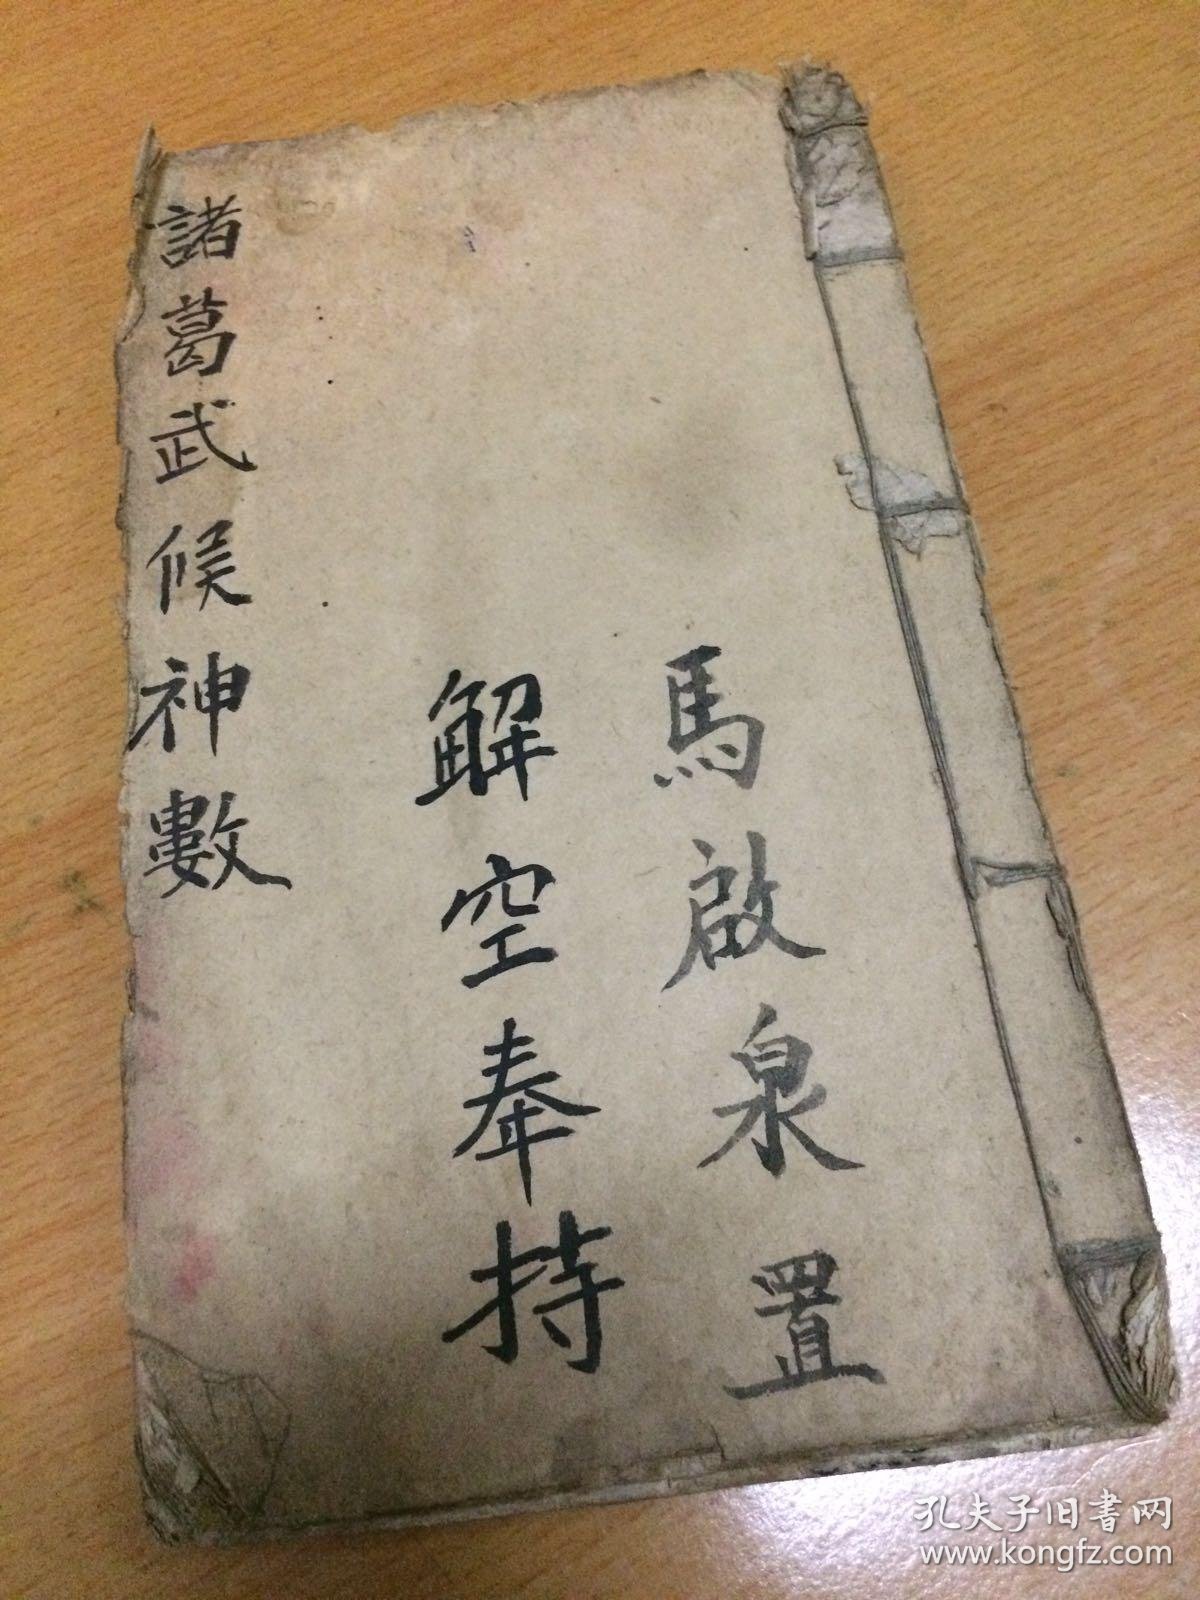 馬啟泉置
解空奉持
諸葛武候神數
孔夫子旧書网
www.kongfz.com